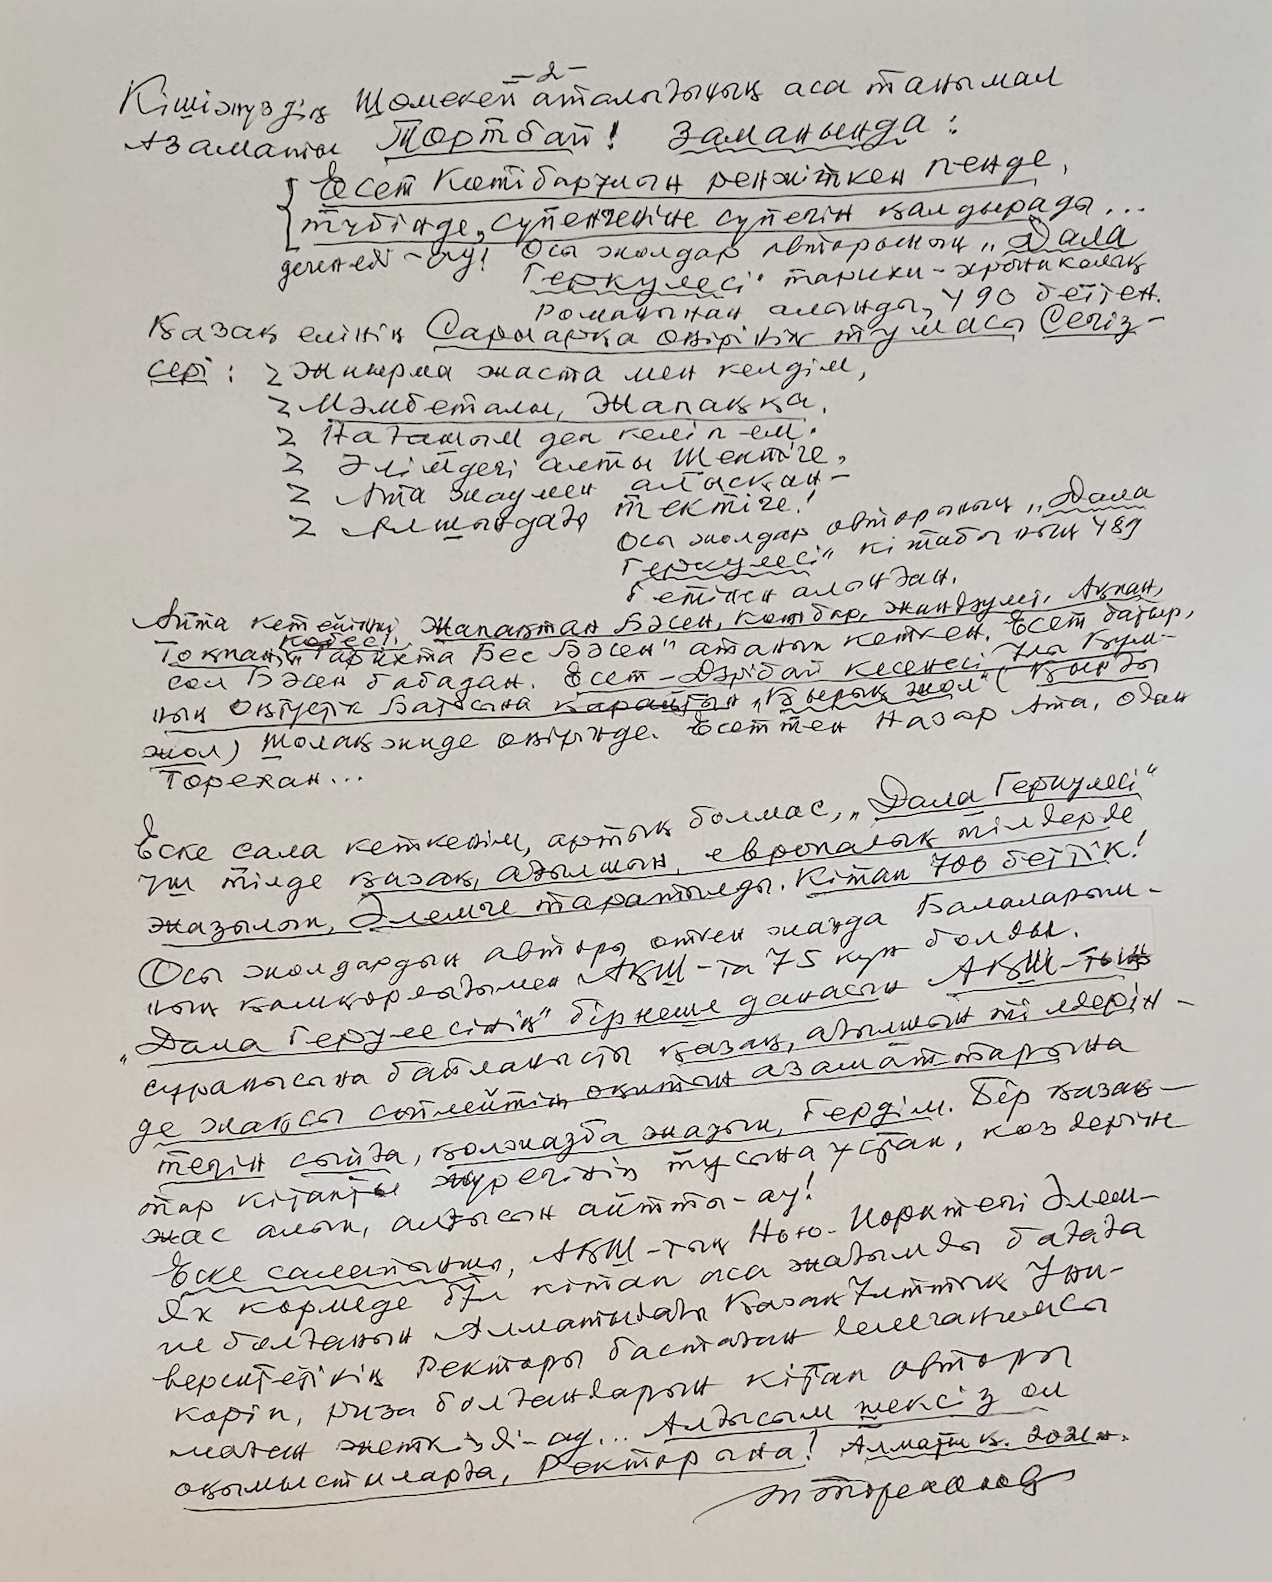 -2-
Кішіжүздің Шөмекей аталығының аса танымал
Азаматы Төртбай! Заманында:
Есет Көтібарұлын ренжіткен пенде,
түбінде, сүпенченіне сүпегін қалдырады...
дегенеді-ау! Осы жолдар авторының „Дала
Геркулесі" тарихи-хроникалық
романынан алынды, 490 беттен.
Қазақ елінің Сарыарқа өңірінің тумасы Сегіз-
сері: Жиырма жаста мен келдім,
Мәмбеталы, Жапаққа.
Нағашым деп келіп ем.
Әлімдегі алты Шектіге,
Ата жаумен алысқан-
Алшындағы тектіге!
Осы жолдар авторының „Дала
Геркулесі" кітабының 489
бетінен алынған.
Айта кетейінші, Жапақтан Бәсен, Көтібар, Жандәулет, Ақпан,
Тоқпан көбесі, „Тарихта Бес Бәсен" атанып кеткен. Есет батыр,
сол Бәсен бабадан. Есет-Дәрібай кесенесі Ұлы Құм-
ның Оңтүстік Батысына қарайтын „Қырық жол" (Қырғы
жол) Шолақжиде өңірінде. Есеттен Назар Ата, Одан
Төрехан...
Еске сала кеткенім, артық болмас, „Дала Геркулесі"
үш тілде қазақ, ағылшын, европалық тілдерде
жазылып, Әлемге таратылды. Кітап 700 беттік!
Осы жолдардың авторы өткен жазда Балаларыңи-
ның қамқорлығымен АҚШ-та 75 күн болды.
„Дала Геркулесінің" бірнеше данасын АҚШ-тың
сұранысына байланысты қазақ, ағылшын тілдерін-
де жақсы сөйлейтін, оқитын азаматтарына
тегін сыйға, қолжазба жазып, бердім. Бір қазақ-
тар кітапты жүрегінің тұсына ұстап, көздерін
жас алып, алғысын айтты-ау!
Еске салатыным, АҚШ-тың Нью-Йорктегі Әлем-
дік көрмеде бұл кітап аса жағымды бағаға
ие болғанын Алматыдағы Қазақ Ұлттық Уни-
верситетінің Ректоры бастаған делегациясы
көріп, риза болғандарын кітап авторы
маған жеткізді-ау... Алғысым шексіз ол
оқымыстыларға, Ректорына! Алматы қ. 2021ж.
Төреханов